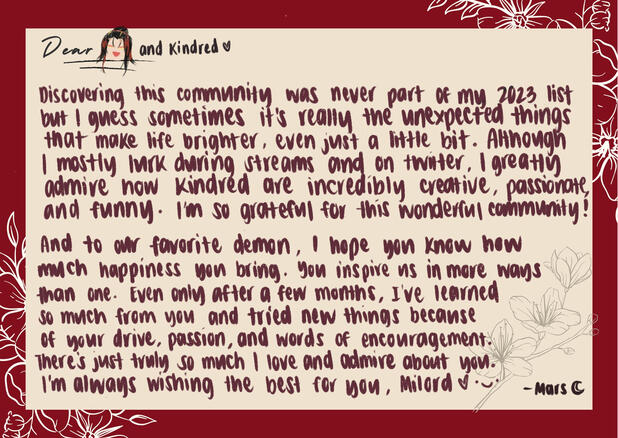 Dear and Kindred
Discovering this community was never part of my 2023 list
but I guess sometimes it's really the unexpected things
that make life brighter, even just a little bit. Although
I mostly lurk during streams and on twitter, I greatly
admire how Kindred are incredibly creative, passionate,
and funny. I'm so grateful for this wonderful community!
And to our favorite demon, I hope you know how
much happiness you bring. You inspire us in more ways
than one. Even only after a few months, I've learned
so much from you and tried new things because
of your drive, passion, and words of encouragement.
There's just truly so much I love and admire about you.
I'm always wishing the best for you, Milord
-Mars